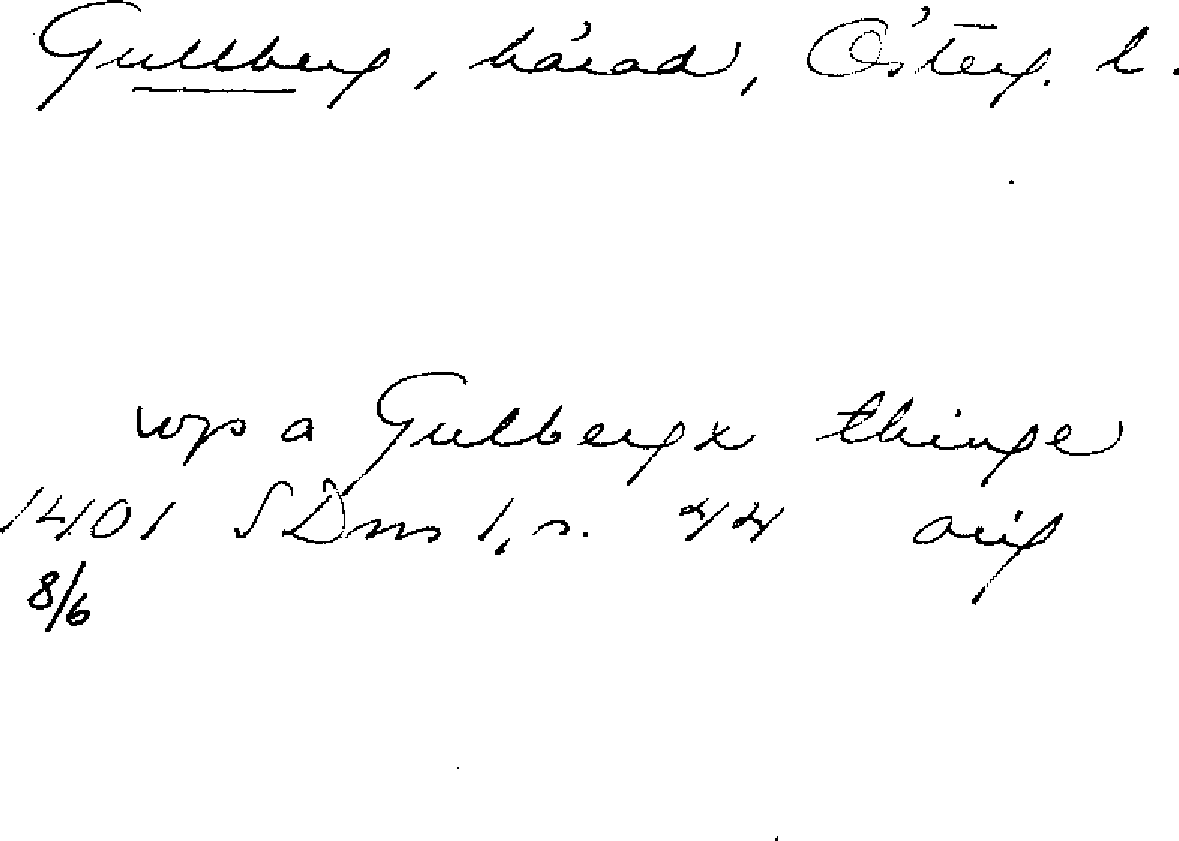 Gullberg, härad, Österg. l.
wp a Gulbergx thinge
1401 SDns 1, s. 44 orig
8/6